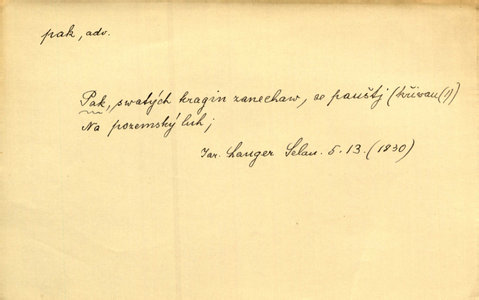 pak, adv.
Pak, swatých kragin zanechaw, se pauštj (skřiwan (?)
Na pozemský luh;
Jar. Langer Selan. 5. 13. (1830)